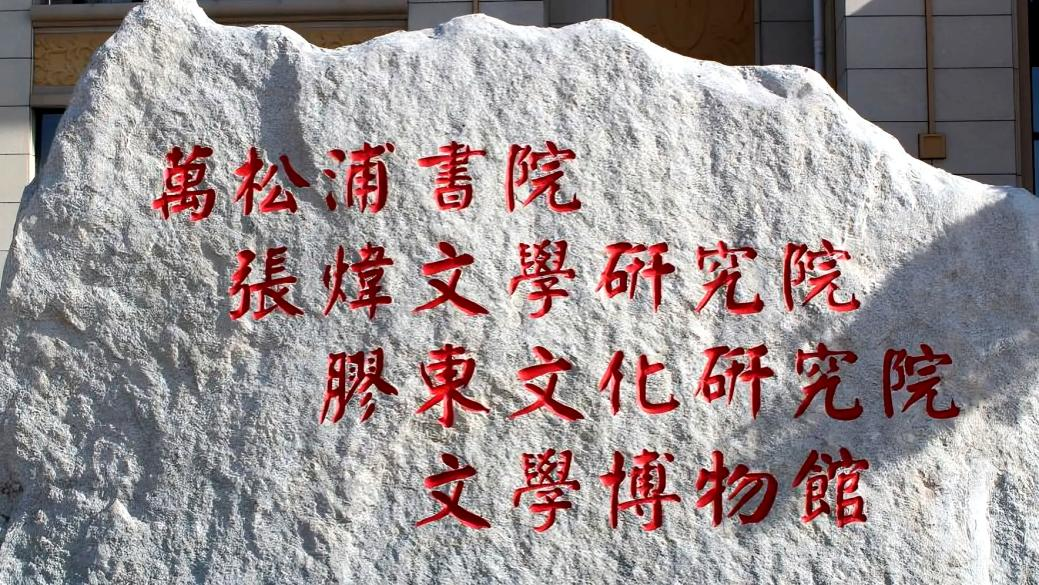 萬松浦書院
張煒文學研究院
膠東文化研究院
文學博物館